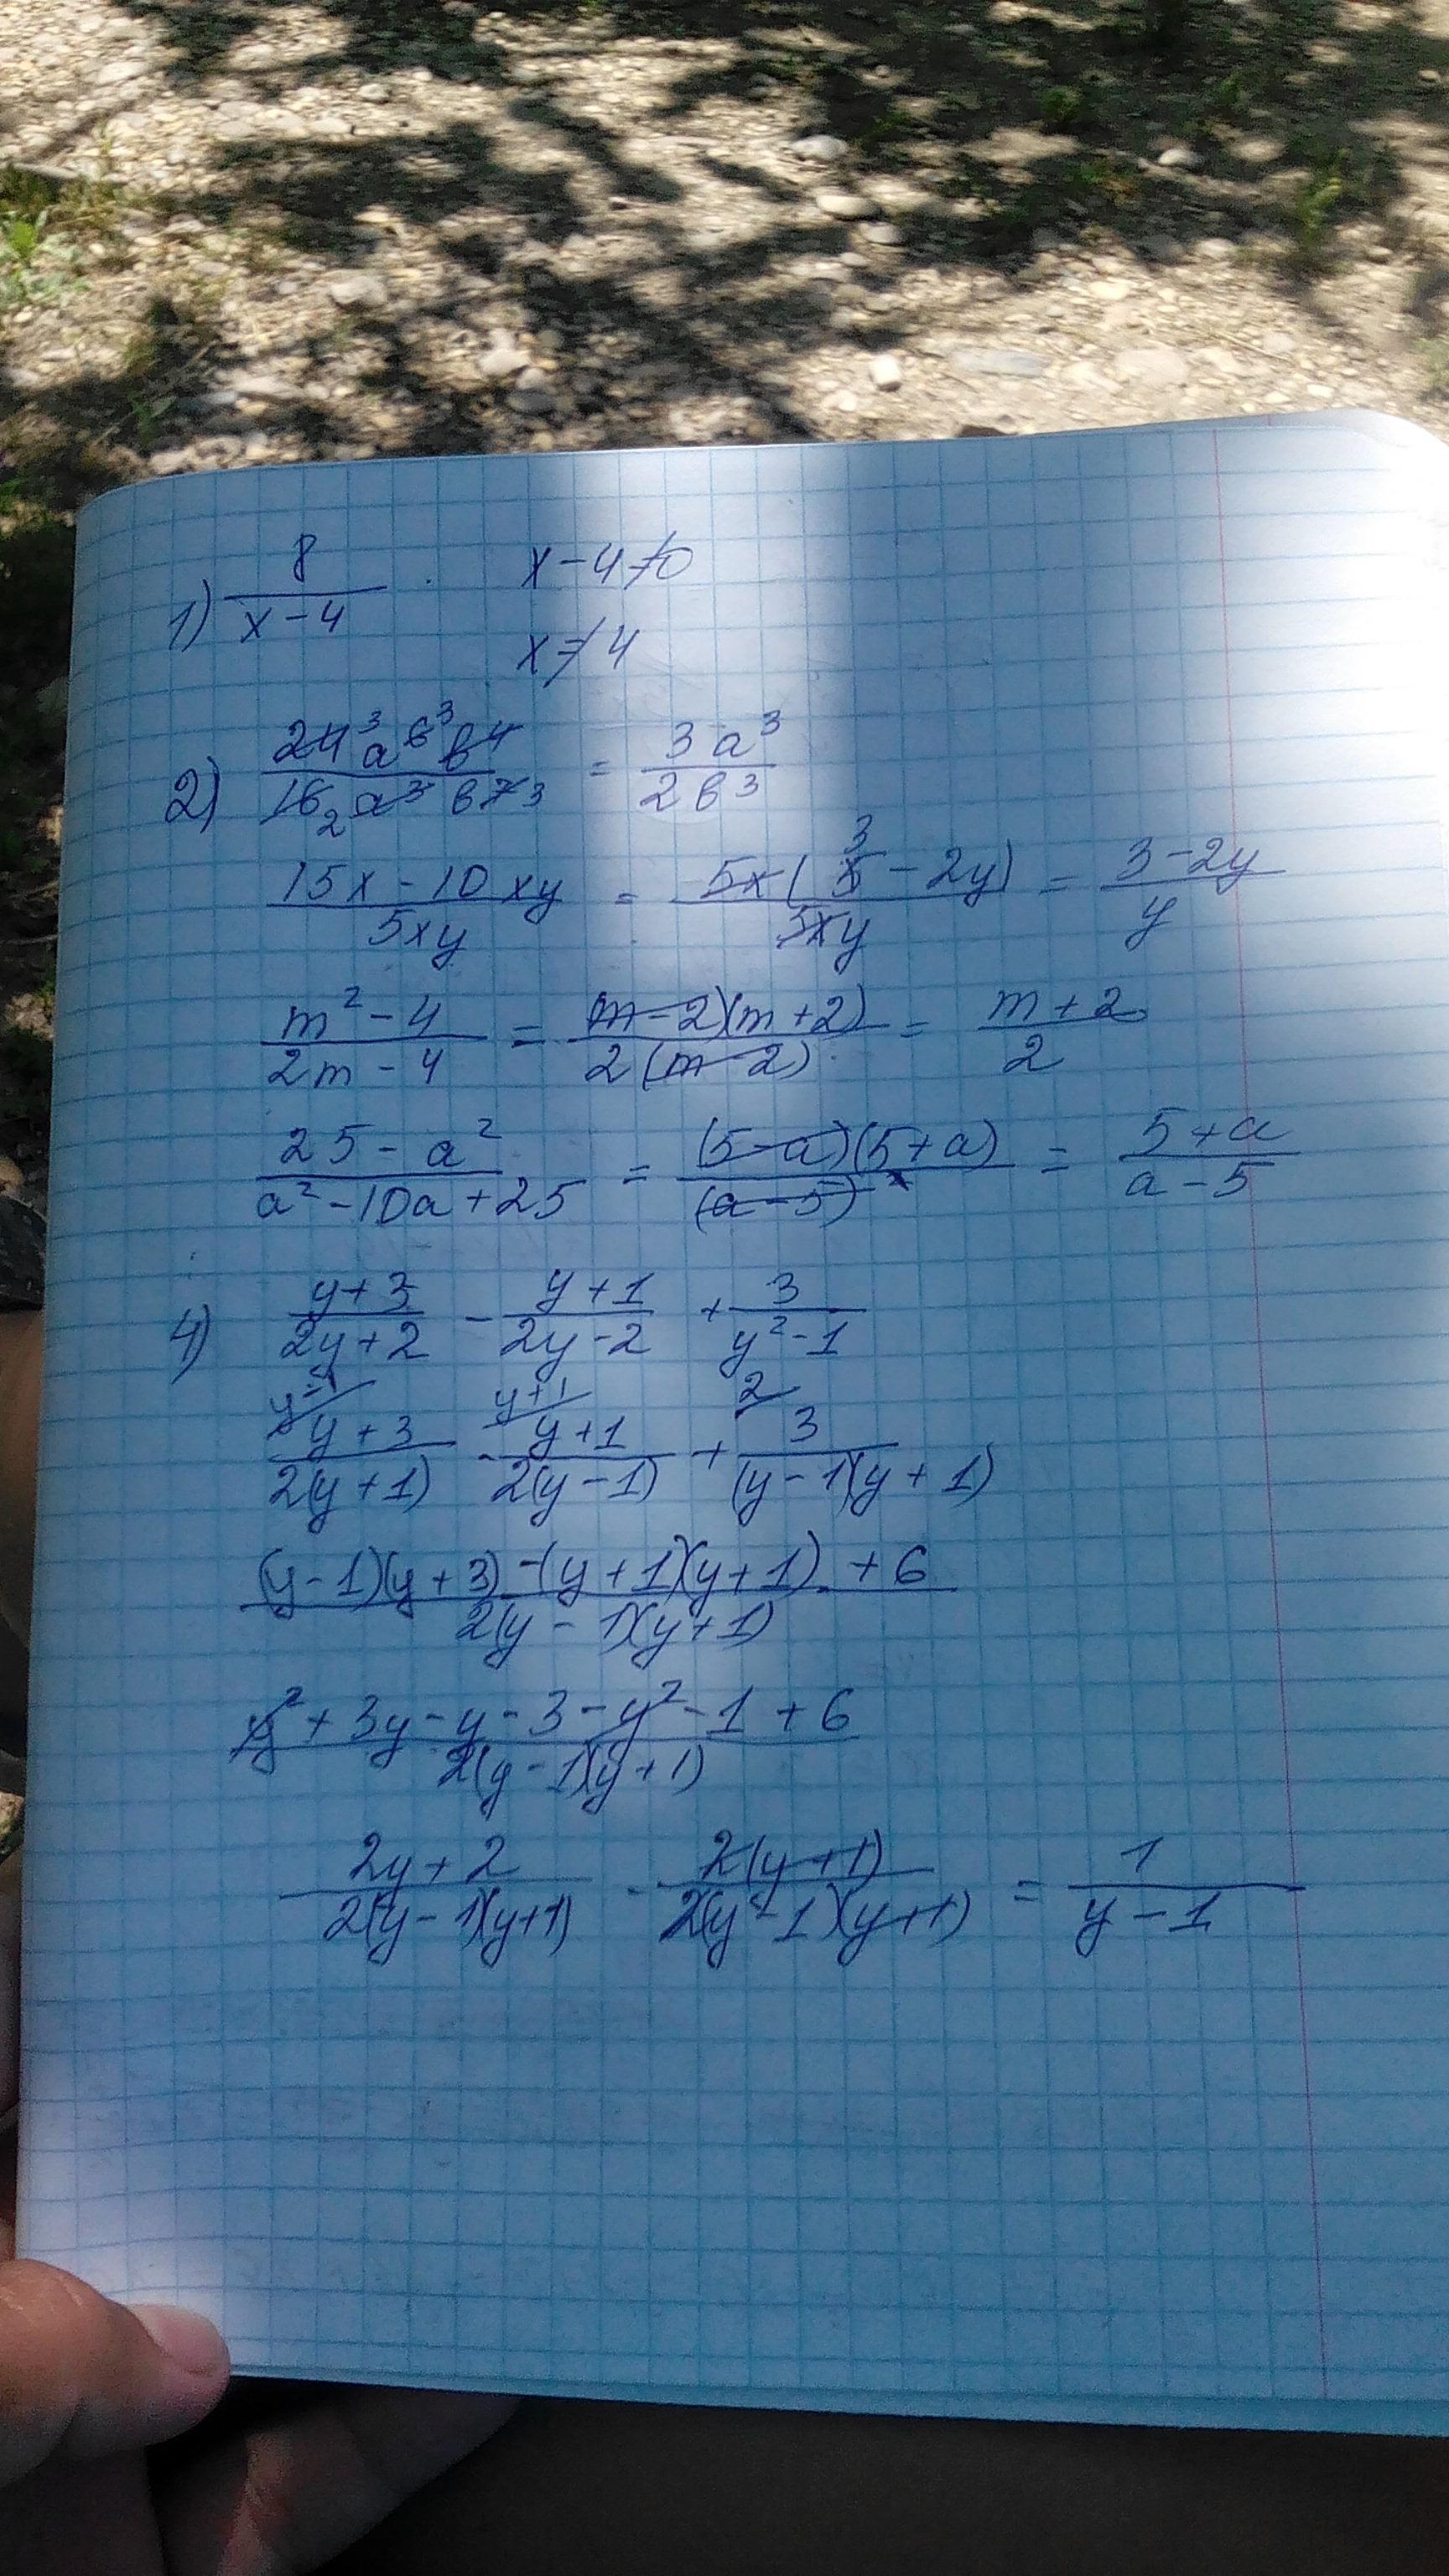 1) 8/(x-4) x-4≠0
x≠4
2) 24³a⁶³b⁴/16₂a³b⁷3 = 3a³/2b³
(15x-10xy)/5xy = 5x(3-2y)/5xy = (3-2y)/y
(m²-4)/(2m-4) = (m-2)(m+2)/2(m-2) = (m+2)/2
(25-a²)/(a²-10a+25) = (5-a)(5+a)/(a-5)² = (5+a)/(a-5)
4) (y+3)/(2y+2) - (y+1)/(2y-2) + 3/(y²-1)
y-1 y+1 2
(y+3)/2(y+1) - (y+1)/2(y-1) + 3/(y-1)(y+1)
((y-1)(y+3)-(y+1)(y+1)+6)/2(y-1)(y+1)
(y²+3y-y-3-y²-1+6)/2(y-1)(y+1)
(2y+2)/2(y-1)(y+1) - 2(y+1)/2(y-1)(y+1) = 1/(y-1)